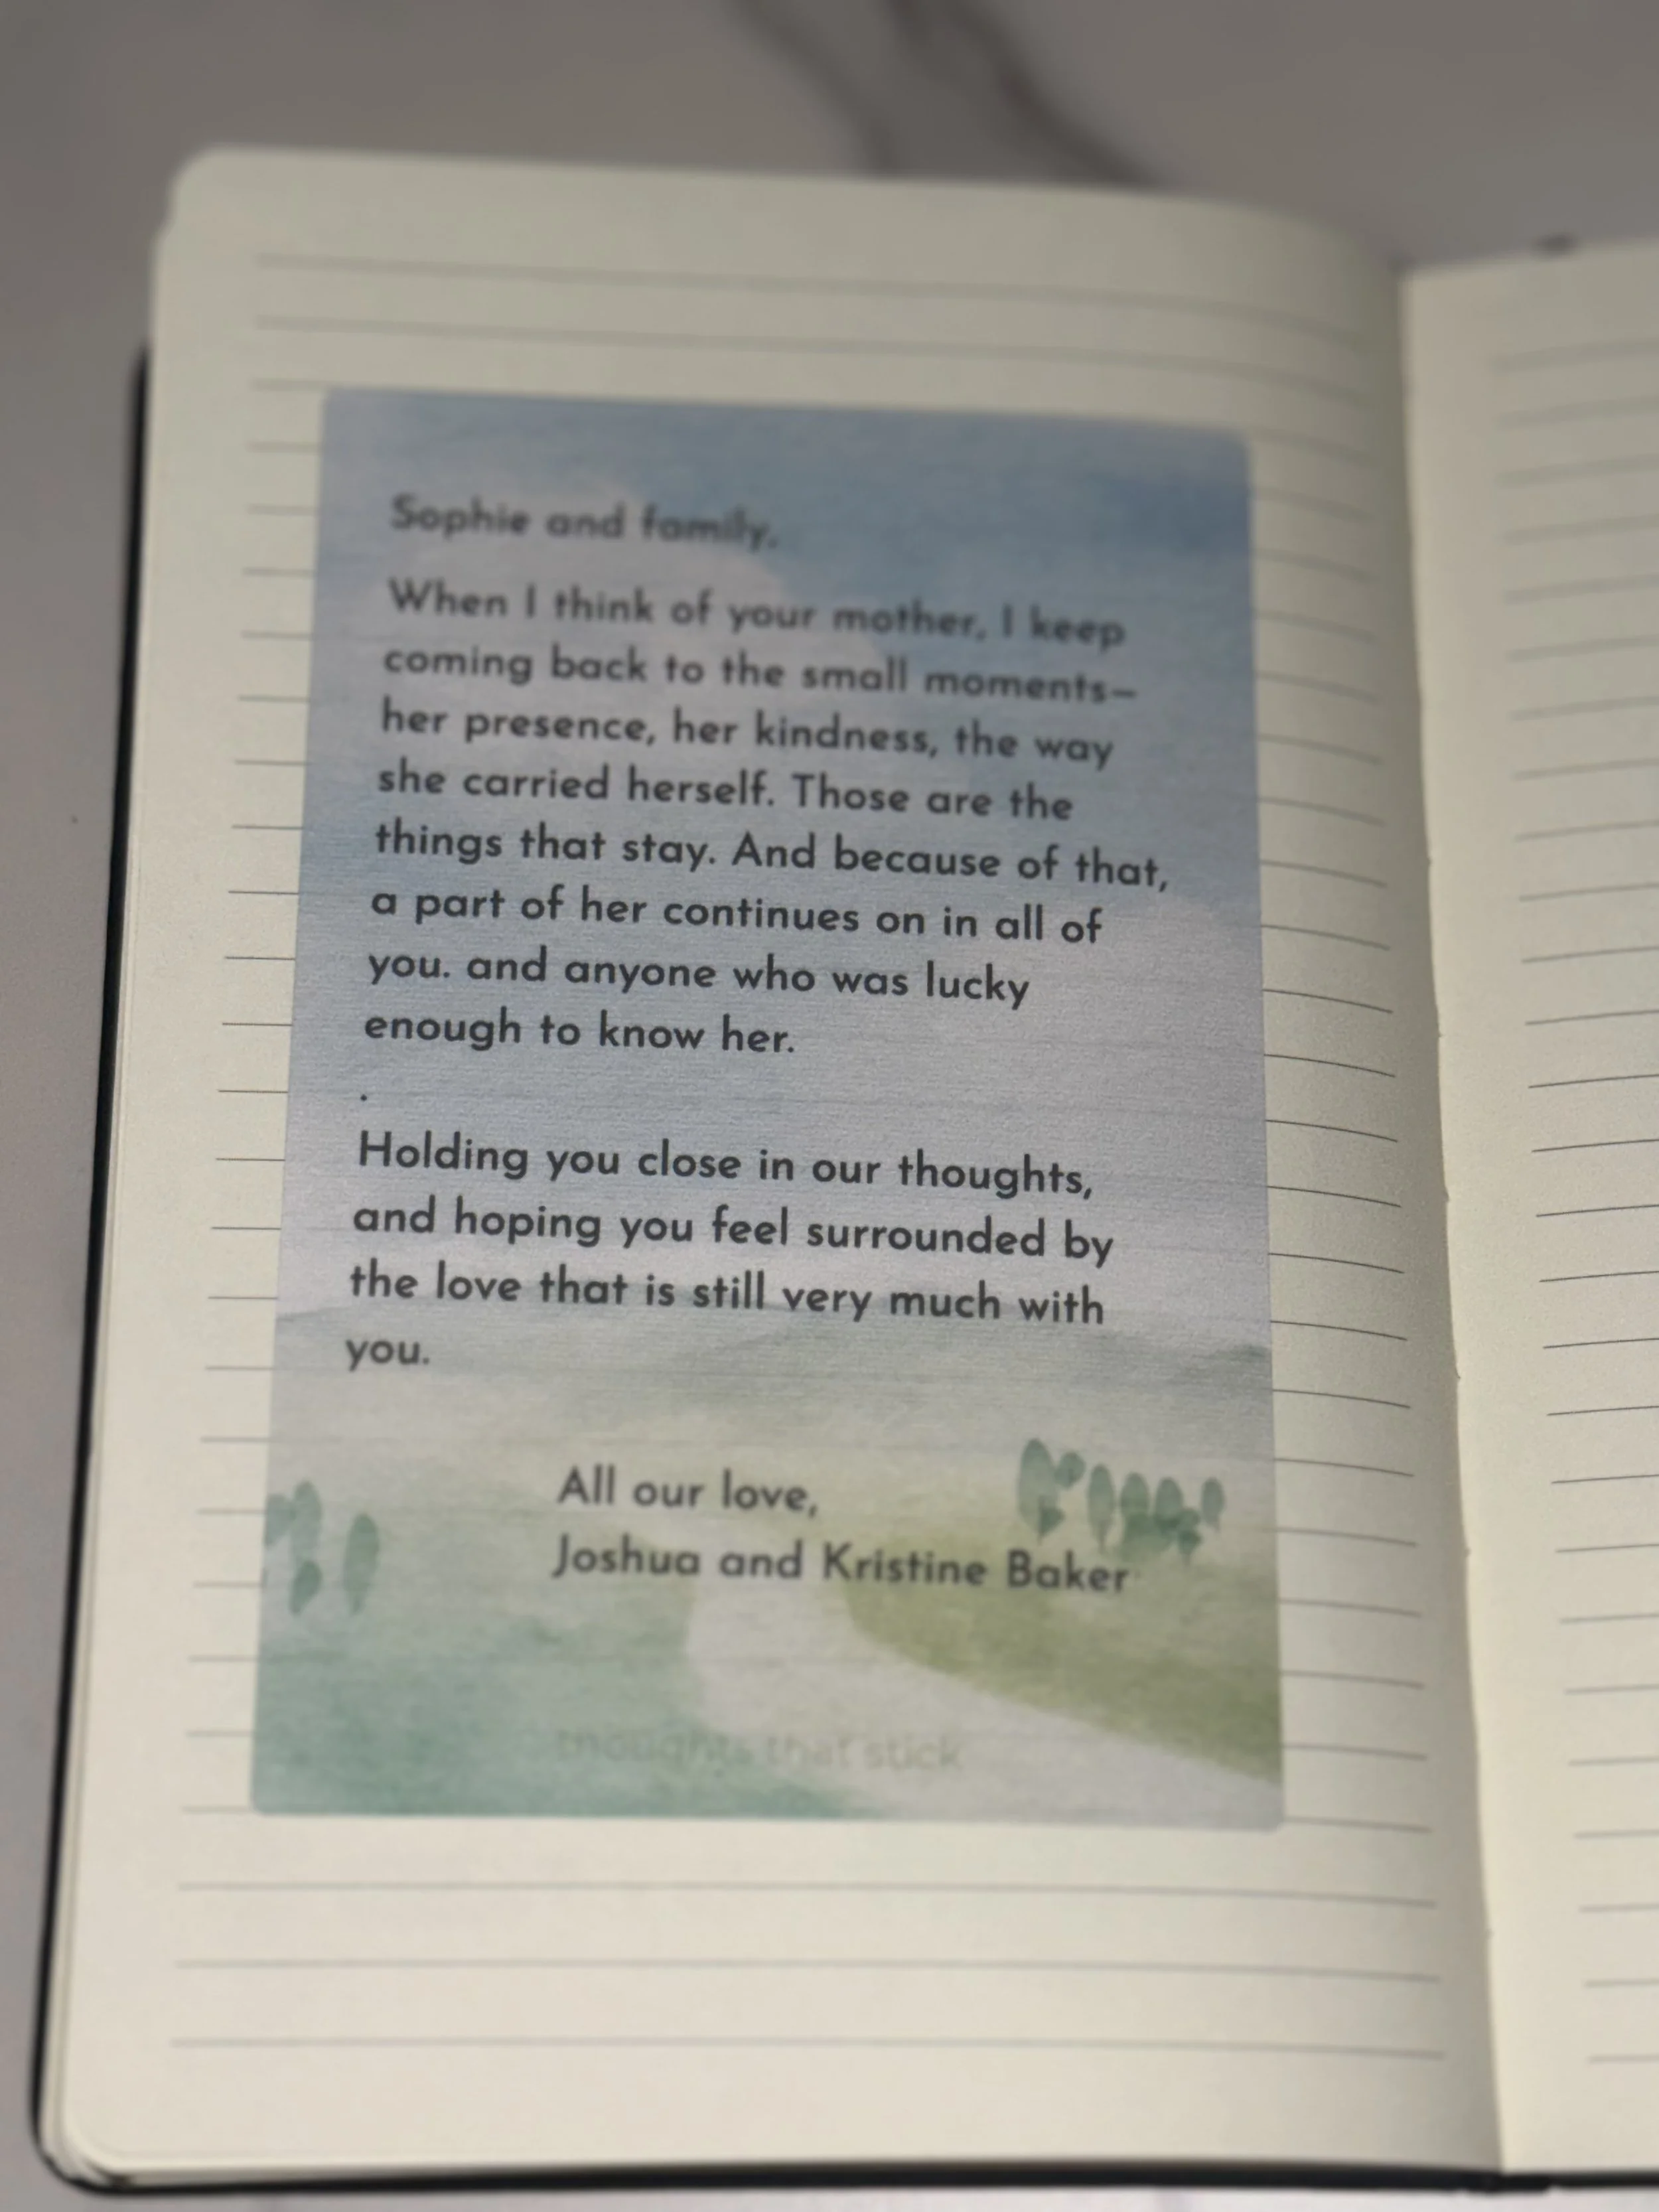 Sophie and family,
When I think of your mother, I keep
coming back to the small moments—
her presence, her kindness, the way
she carried herself. Those are the
things that stay. And because of that,
a part of her continues on in all of
you. and anyone who was lucky
enough to know her.
.
Holding you close in our thoughts,
and hoping you feel surrounded by
the love that is still very much with
you.
All our love,
Joshua and Kristine Baker
thoughts that stick